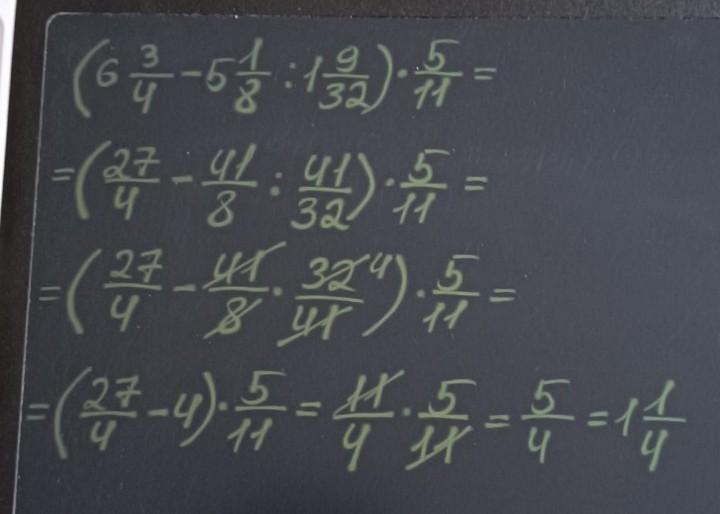 (6 3/4 - 5 1/8 : 1 9/32) · 5/11 =
= (27/4 - 41/8 : 41/32) · 5/11 =
= (27/4 - 41/8 · 32/41 4) · 5/11 =
= (27/4 - 4) · 5/11 = 11/4 · 5/11 = 5/4 = 1 1/4